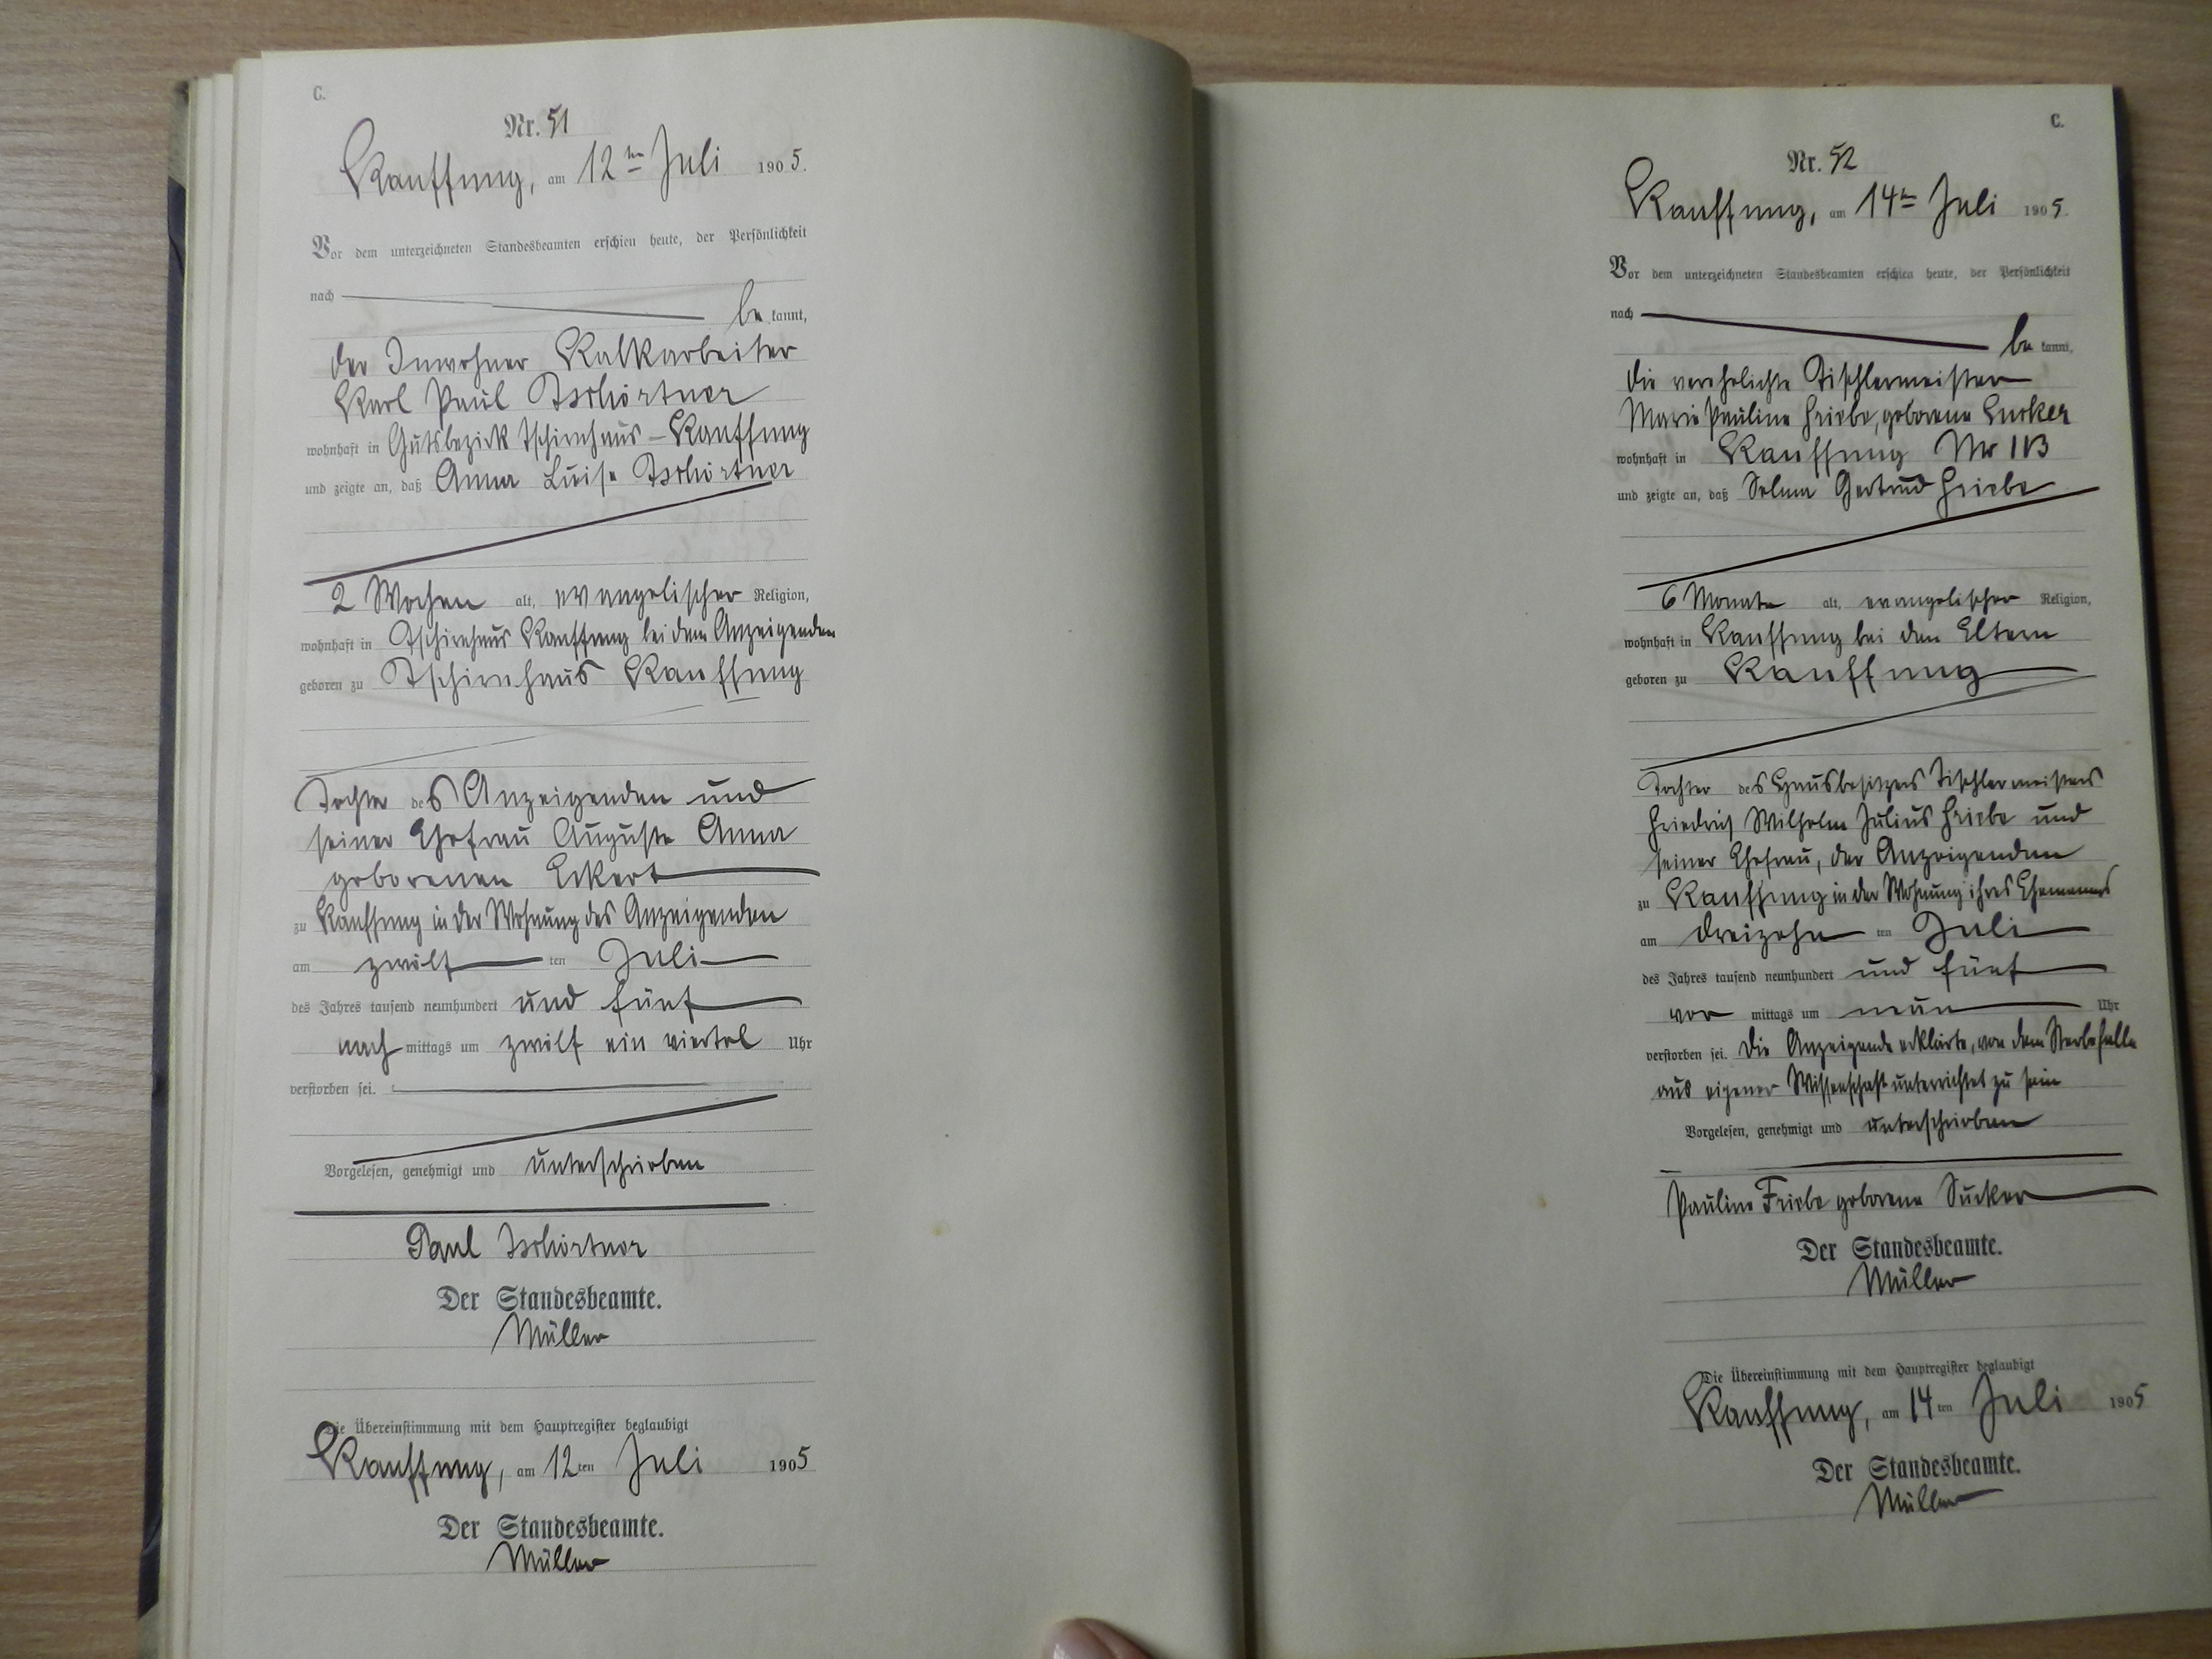 C.
Nr. 51
Kauffung, am 12ten Juli 1905.
Vor dem unterzeichneten Standesbeamten erschien heute, der Persönlichkeit
nach
be kannt,
der Inwohner Kalkarbeiter
Karl Paul Tschörtner
wohnhaft in Gutsbezirk Tschirnhaus-Kauffung
und zeigte an, daß Anna Luise Tschörtner
2 Wochen alt, evangelischer Religion,
wohnhaft in Tschirnhaus Kauffung bei dem Anzeigenden
geboren zu Tschirnhaus Kauffung
Tochter des Anzeigenden und
seiner Ehefrau Auguste Anna
geborenen Eckert
zu Kauffung in der Wohnung des Anzeigenden
am zwölf ten Juli
des Jahres tausend neunhundert und fünf
nach mittags um zwölf ein viertel Uhr
verstorben sei.
Vorgelesen, genehmigt und unterschrieben
Paul Tschörtner
Der Standesbeamte.
Müller
Die Übereinstimmung mit dem Hauptregister beglaubigt
Kauffung, am 12ten Juli 1905
Der Standesbeamte.
Müller
C.
Nr. 52
Kauffung, am 14ten Juli 1905.
Vor dem unterzeichneten Standesbeamten erschien heute, der Persönlichkeit
nach
be kannt,
die verehelichte Tischlermeister
Marie Pauline Friebe, geborene Sucker
wohnhaft in Kauffung Nr 113
und zeigte an, daß Selma Gertrud Friebe
6 Monate alt, evangelischer Religion,
wohnhaft in Kauffung bei den Eltern
geboren zu Kauffung
Tochter des Hausbesitzers Tischlermeisters
Friedrich Wilhelm Julius Friebe und
seiner Ehefrau, der Anzeigenden
zu Kauffung in der Wohnung ihres Ehemannes
am dreizehn ten Juli
des Jahres tausend neunhundert und fünf
vor mittags um neun Uhr
verstorben sei. Die Anzeigende erklärte, von dem Sterbefalle
aus eigener Wissenschaft unterrichtet zu sein
Vorgelesen, genehmigt und unterschrieben
Pauline Friebe geborene Sucker
Der Standesbeamte.
Müller
Die Übereinstimmung mit dem Hauptregister beglaubigt
Kauffung, am 14ten Juli 1905
Der Standesbeamte.
Müller